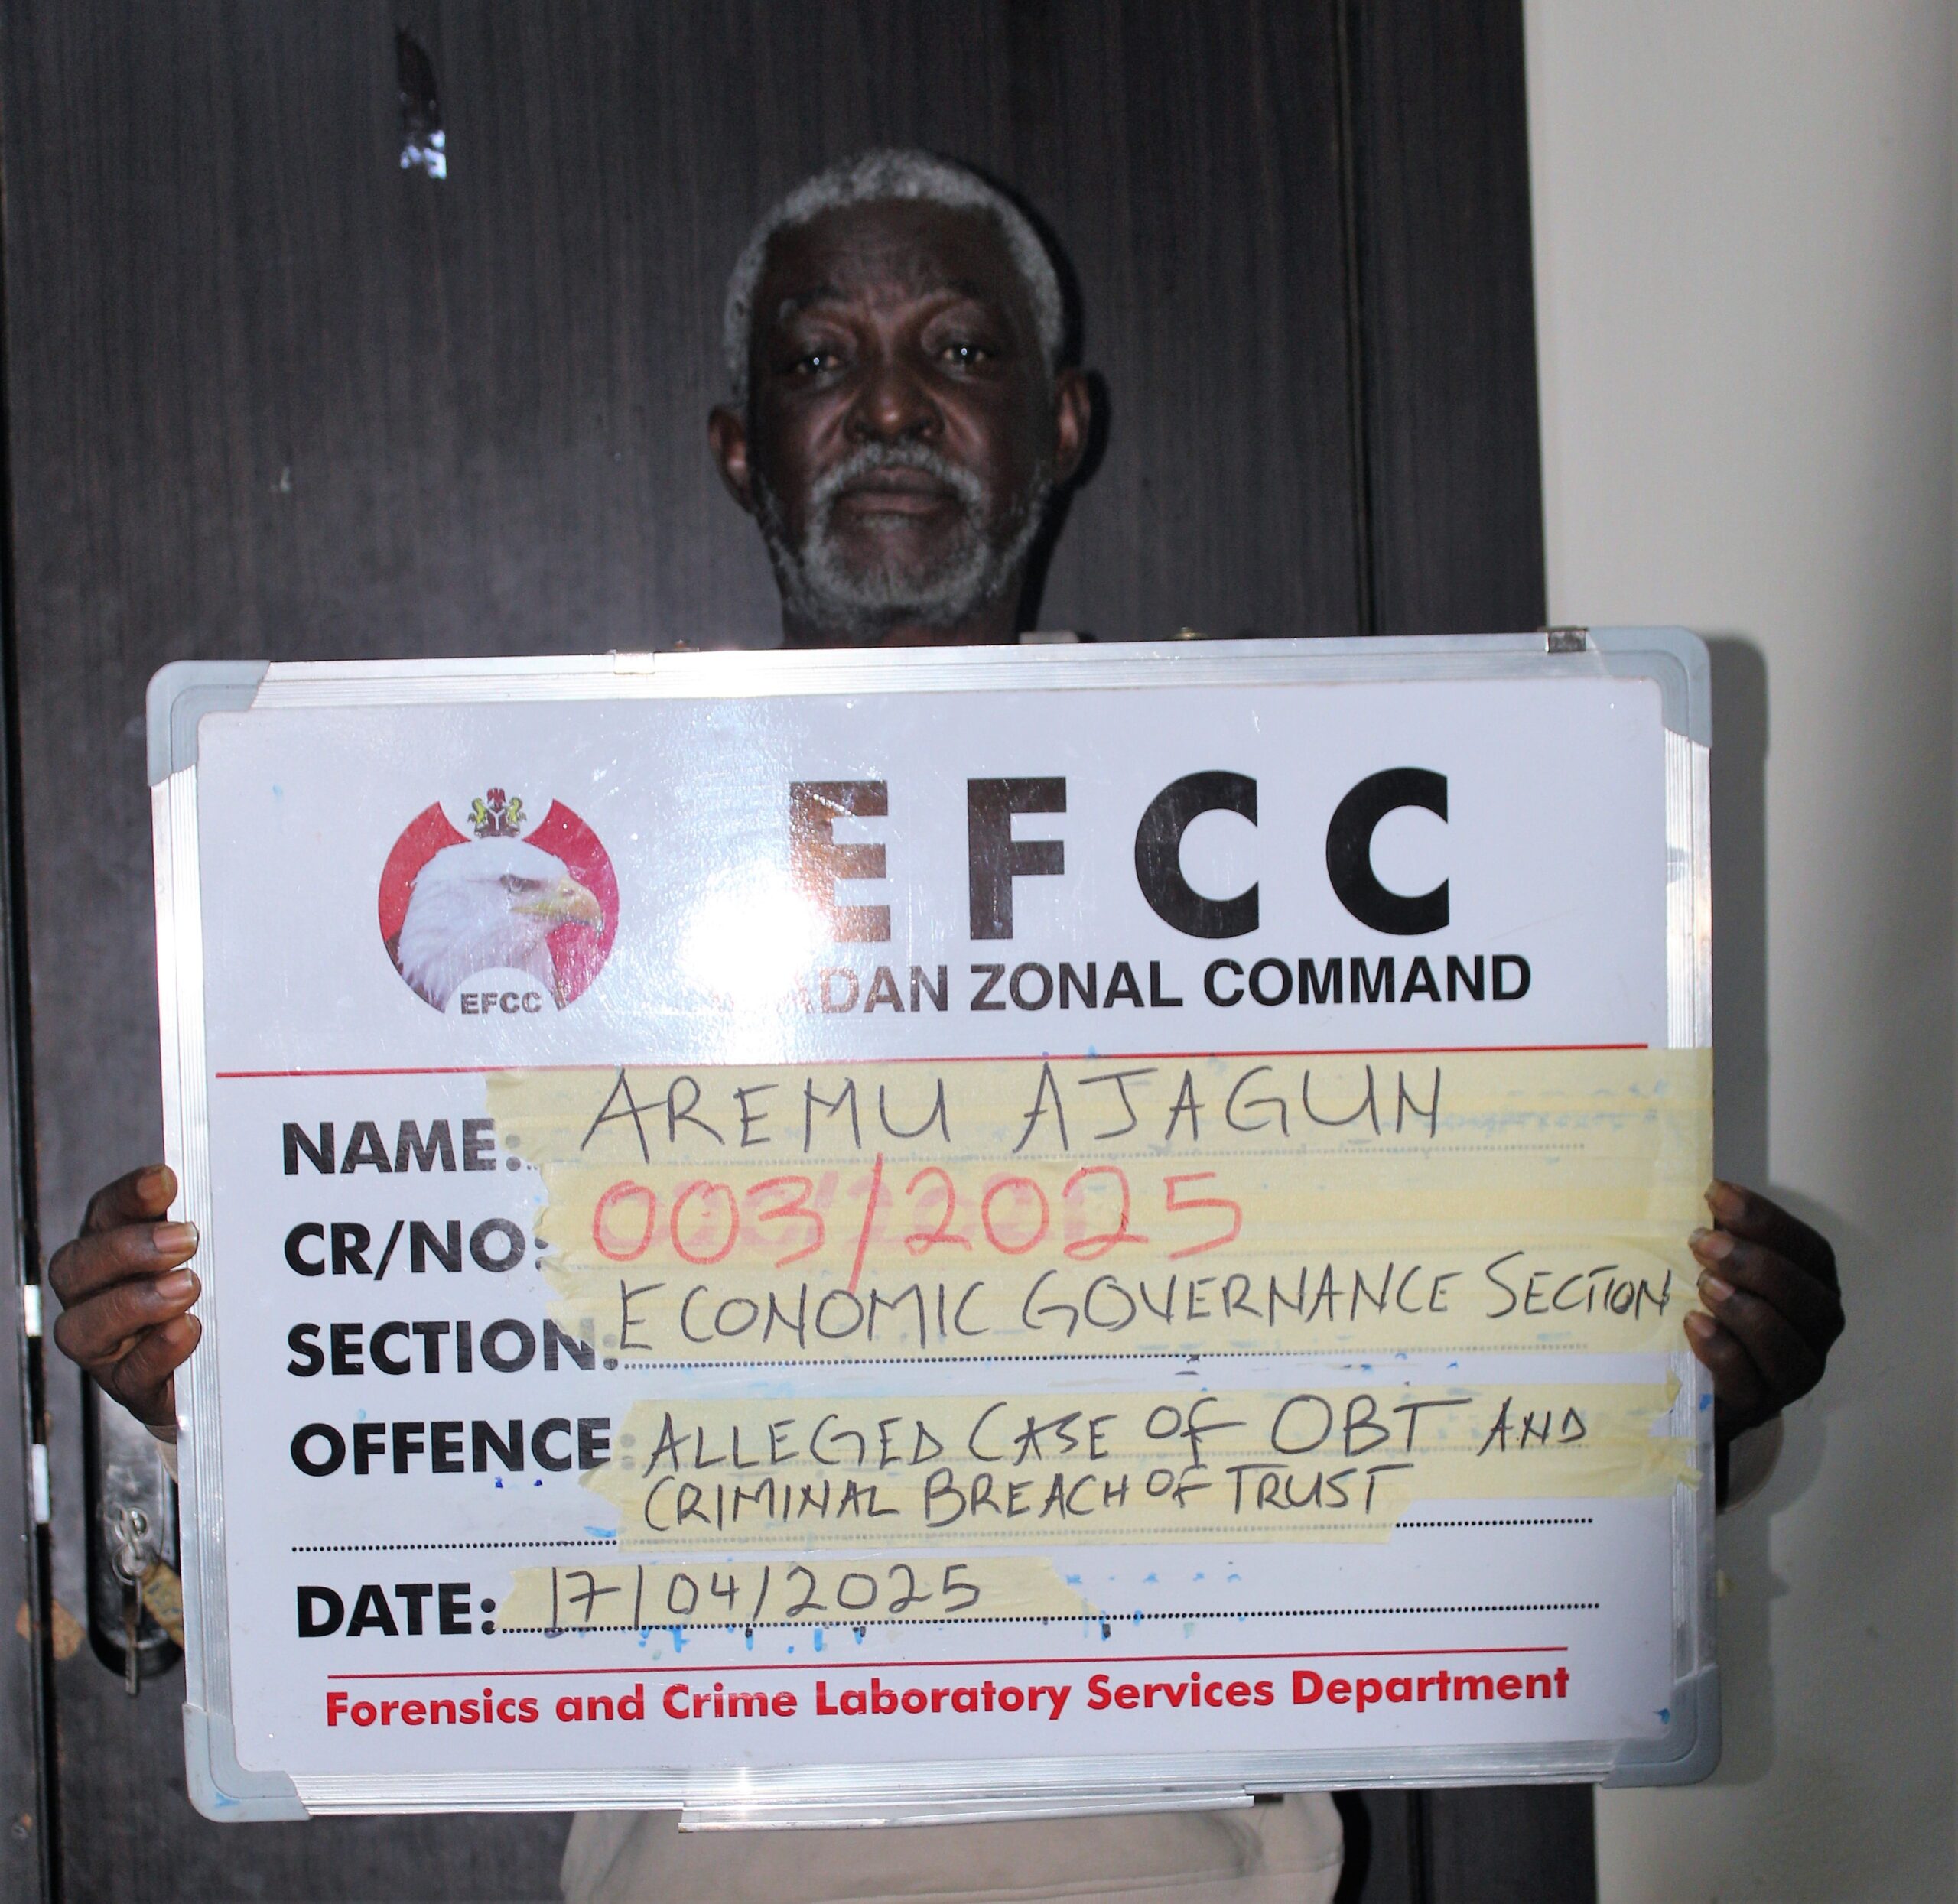 EFCC
EFCC
ZONAL COMMAND
NAME: AREMU AJAGUN
CR/NO: 003/2025
SECTION: ECONOMIC GOVERNANCE SECTION
OFFENCE: ALLEGED CASE OF OBT AND
CRIMINAL BREACH OF TRUST
DATE: 17/04/2025
Forensics and Crime Laboratory Services Department